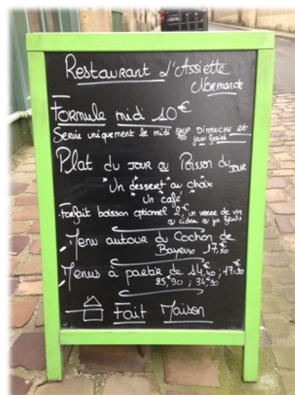 Restaurant L'Assiette
Normande
Formule midi 10€
Servie uniquement le midi sauf Dimanche et
jours feriés
Plat du jour ou Poisson du jour
"Un dessert au choix
"Un café"
Forfait boisson optionnel 2€, un verre de vin
ou cidre ou
Menu autour du Cochon de
Bayeux 17,€90
Menus à partir de 14,€40 ; 17,€90
25,€90 ; 34,€90
Fait Maison